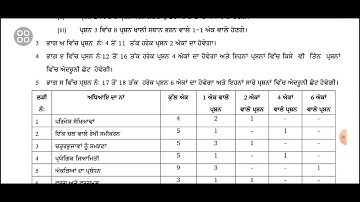 (iii) ਪ੍ਰਸ਼ਨ 3 ਵਿੱਚ 8 ਪ੍ਰਸ਼ਨ ਖਾਲੀ ਸਥਾਨ ਭਰਨ ਵਾਲੇ 1-1 ਅੰਕ ਵਾਲੇ ਹੋਣਗੇ।
3 ਭਾਗ ਅ ਵਿੱਚ ਪ੍ਰਸ਼ਨ ਨੰ: 4 ਤੋਂ 11 ਤੱਕ ਹਰੇਕ ਪ੍ਰਸ਼ਨ 2 ਅੰਕਾਂ ਦਾ ਹੋਵੇਗਾ।
4 ਭਾਗ ੲ ਵਿੱਚ ਪ੍ਰਸ਼ਨ ਨੰ:12 ਤੋਂ 16 ਤੱਕ ਹਰੇਕ ਪ੍ਰਸ਼ਨ 4 ਅੰਕਾਂ ਦਾ ਹੋਵੇਗਾ ਅਤੇ ਇਹਨਾਂ ਪ੍ਰਸ਼ਨਾਂ ਵਿੱਚ ਕਿਸੇ ਵੀ ਤਿੰਨ ਪ੍ਰਸ਼ਨਾਂ
ਵਿੱਚ ਅੰਦਰੂਨੀ ਛੋਟ ਹੋਵੇਗੀ।
5 ਭਾਗ ਸ ਵਿੱਚ ਪ੍ਰਸ਼ਨ ਨੰ: 17 ਤੋਂ 18 ਤੱਕ ਹਰੇਕ ਪ੍ਰਸ਼ਨ 6 ਅੰਕਾਂ ਦਾ ਹੋਵੇਗਾ ਅਤੇ ਇਹਨਾਂ ਸਾਰੇ ਪ੍ਰਸ਼ਨਾਂ ਵਿੱਚ ਅੰਦਰੂਨੀ ਛੋਟ ਹੋਵੇਗੀ।
ਲੜੀ ਨੰ: ਅਧਿਆਇ ਦਾ ਨਾਂ ਕੁੱਲ ਅੰਕ 1 ਅੰਕ ਵਾਲੇ ਪ੍ਰਸ਼ਨ 2 ਅੰਕਾਂ ਵਾਲੇ ਪ੍ਰਸ਼ਨ 4 ਅੰਕਾਂ ਵਾਲੇ ਪ੍ਰਸ਼ਨ 6 ਅੰਕਾਂ ਵਾਲੇ ਪ੍ਰਸ਼ਨ
1 ਪਰਿਮੇਯ ਸੰਖਿਆਵਾਂ 4 2 1 - -
2 ਇੱਕ ਚਲ ਵਾਲੇ ਰੇਖੀ ਸਮੀਕਰਨ 5 1 - 1 -
3 ਚਤੁਰਭੁਜਾਂ ਨੂੰ ਸਮਝਣਾ 5 3 1 - -
4 ਪ੍ਰਯੋਗਿਕ ਜਿਆਮਿਤੀ 5 1 - 1 -
5 ਅੰਕੜਿਆਂ ਦਾ ਪ੍ਰਬੰਧਨ 9 3 - - 1
3 1 1 - -